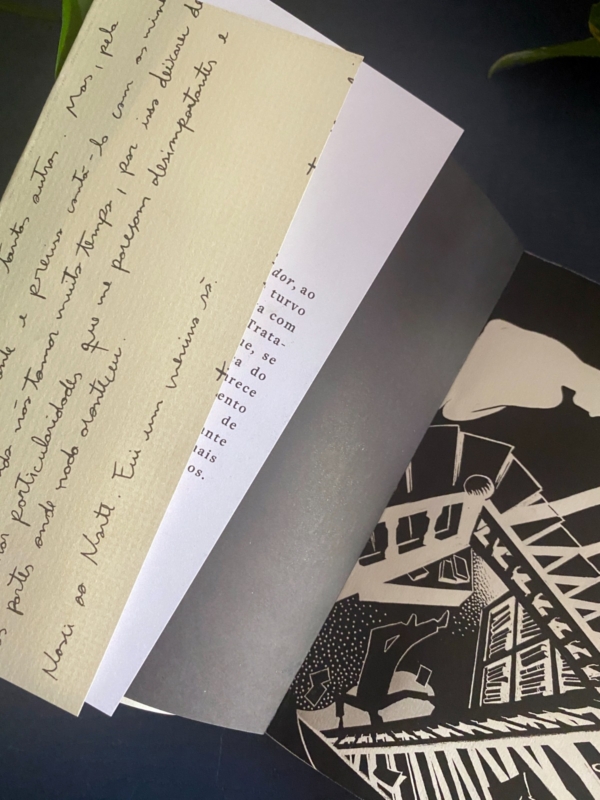 tantas outras. Mas, pela
e preciso contá-lo com as minú
não tomar muito tempo, por isso deixarei d
particularidades que me pareçam desimportantes e
partes onde nada aconteceu.
Nasci ao Norte. Fui um menino só.
dor, ao
turvo
a com
Trata-
ue, se
a do
arece
ento
de
ante
uais
os.